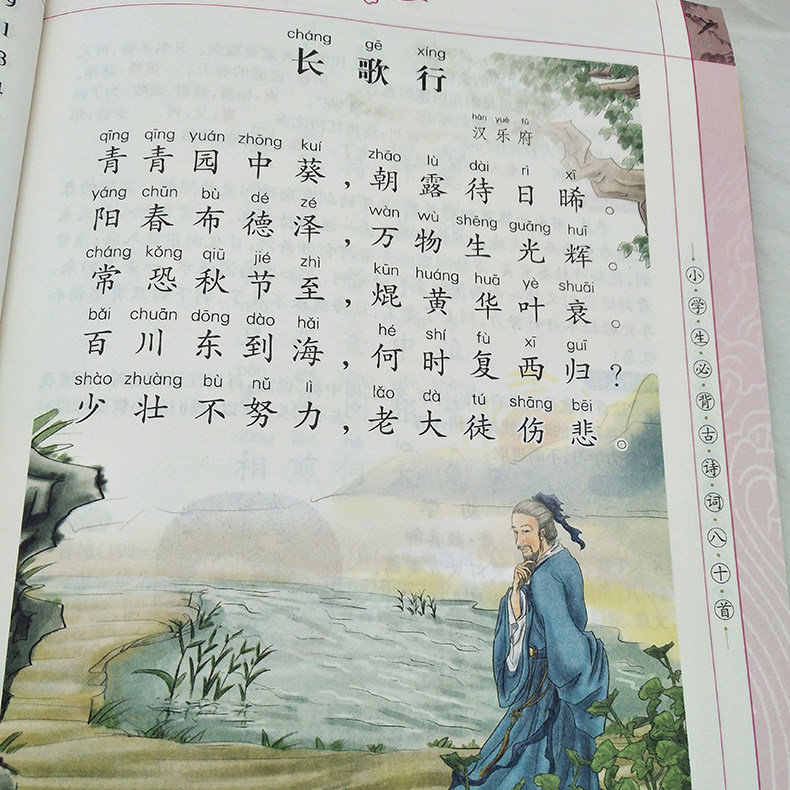 cháng gē xíng
长歌行
hàn yuè fǔ
汉乐府
qīng qīng yuán zhōng kuí zhāo lù dài rì xī
青青园中葵，朝露待日晞。
yáng chūn bù dé zé wàn wù shēng guāng huī
阳春布德泽，万物生光辉。
cháng kǒng qiū jié zhì kūn huáng huā yè shuāi
常恐秋节至，焜黄华叶衰。
bǎi chuān dōng dào hǎi hé shí fù xī guī
百川东到海，何时复西归？
shào zhuàng bù nǔ lì lǎo dà tú shāng bēi
少壮不努力，老大徒伤悲。
小·学·生·必·背·古·诗·词·八·十·首